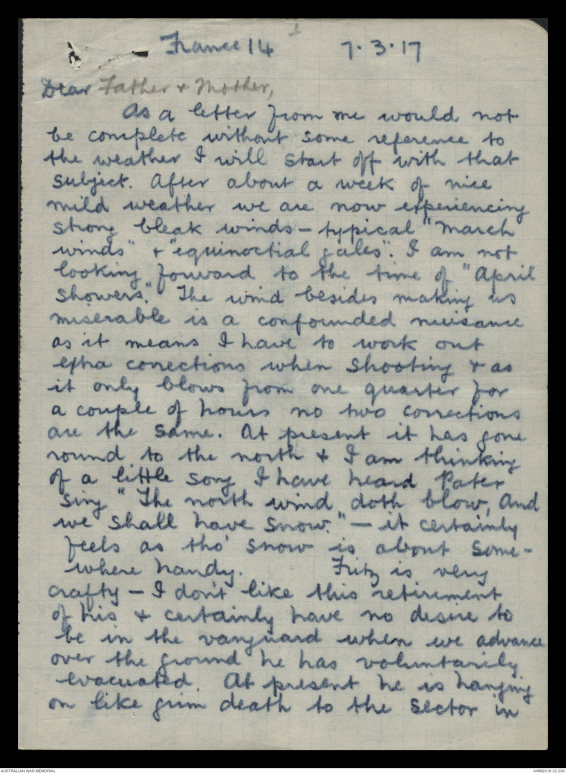 1
France 14 7.3.17
Dear Father & Mother,
As a letter from me would not
be complete without some reference to
the weather I will start off with that
subject. After about a week of nice
mild weather we are now experiencing
strong bleak winds – typical "March
winds" & "equinoctial gales". I am not
looking forward to the time of "April
Showers." The wind besides making us
miserable is a confounded nuisance
as it means I have to work out
extra corrections when shooting & as
it only blows from one quarter for
a couple of hours no two corrections
are the same. At present it has gone
round to the north & I am thinking
of a little song I have heard Pater
sing "The north wind doth blow, And
we shall have snow." – it certainly
feels as tho' snow is about some-
where handy. Fritz is very
crafty – I don't like this retirement
of his & certainly have no desire to
be in the vanguard when we advance
over the ground he has voluntarily
evacuated. At present he is hanging
on like grim death to the sector in
AUSTRALIAN WAR MEMORIAL